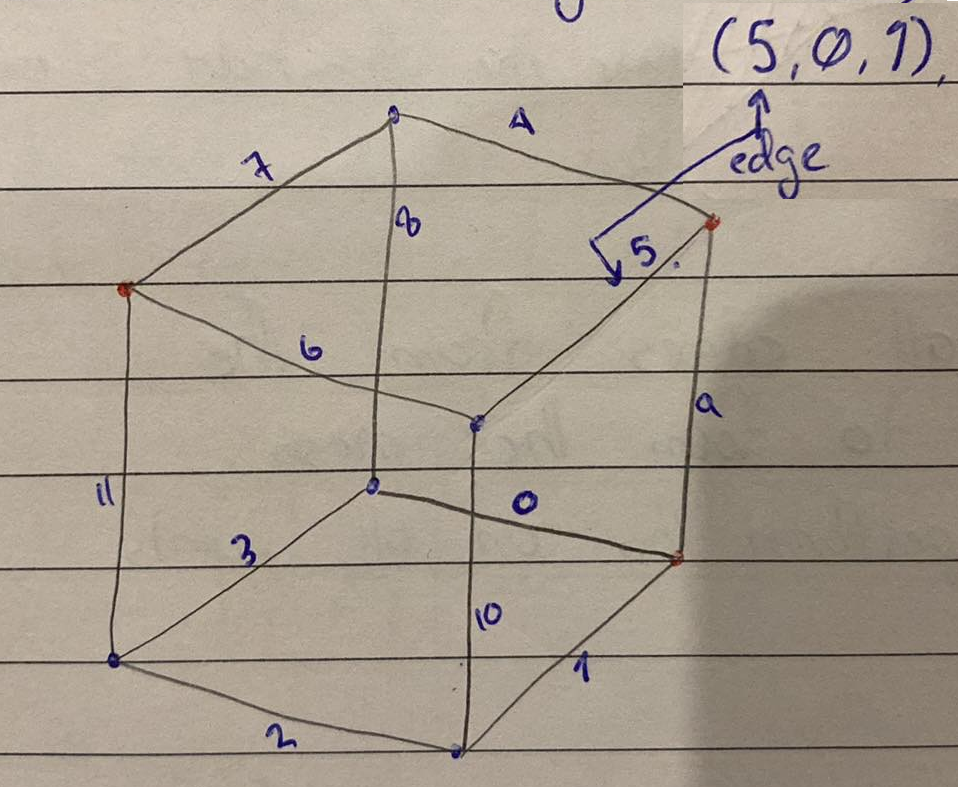 (5,0,1),
edge
4
7
8
5.
6
9
11
0
3
10
1
2